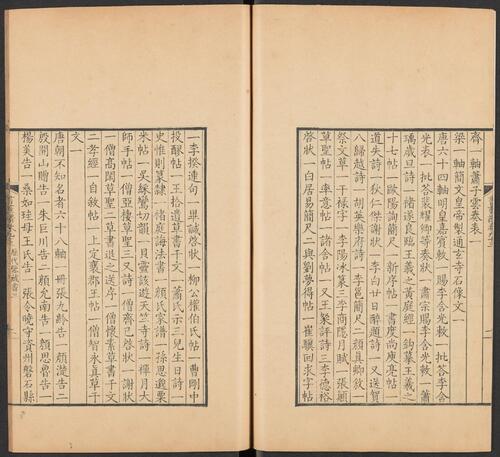 齊一軸蕭子雲表表一
梁一軸簡文皇帝製通玄寺石像文一
唐六十四軸明皇嘉賓敕一賜李含光敕一批李含
光表一批答裴耀卿等奏狀一肅宗賜李含光敕一蕭
瑀歲旦詩一褚遂良臨王羲之黃庭經一鉤摹王羲之
十七帖一歐陽詢簡尺一新序帖一書庾尚庫亮帖一
道失詩一狄仁傑謝狀一李白廿日醉題詩一又送賀
八歸越詩一胡英樂府詩一李邕簡尺二顏真卿敘一
祭文草一干祿字一李陽冰篆二李商隱月賦一張顛
草聖一率意帖一諸舍帖一又一裴詳詩三李德裕
啓狀一白居易簡尺二與劉夢得帖一崔驥回求字帖
一李揆連句一畢諴啓狀一柳公權伯氏帖一曹剛中
投醱帖一王拾遺草書千文一蕭氏示三兒生日詩一
史惟則篆隸一褚庭誨法書一顏氏家譜一孫思邈粟
朱帖一吳綵鸞切韻一貝靈該遊天竺寺詩一禪月大
師手帖一僧亞棲草聖三又詩一僧齊已啓狀一謝狀
一僧高閑草聖二草書退之送序一僧懷素草書千文
二孝經一自敘帖一上定襄郡王帖一僧智永真草千
文一
唐朝不知名者六十八軸一冊張九齡告一顏瀓告二
殷開山贈告一朱巨川告二顏允南告一顏思魯告一
楊美告一桑如珪母王氏告一張令曉守資州磐石縣